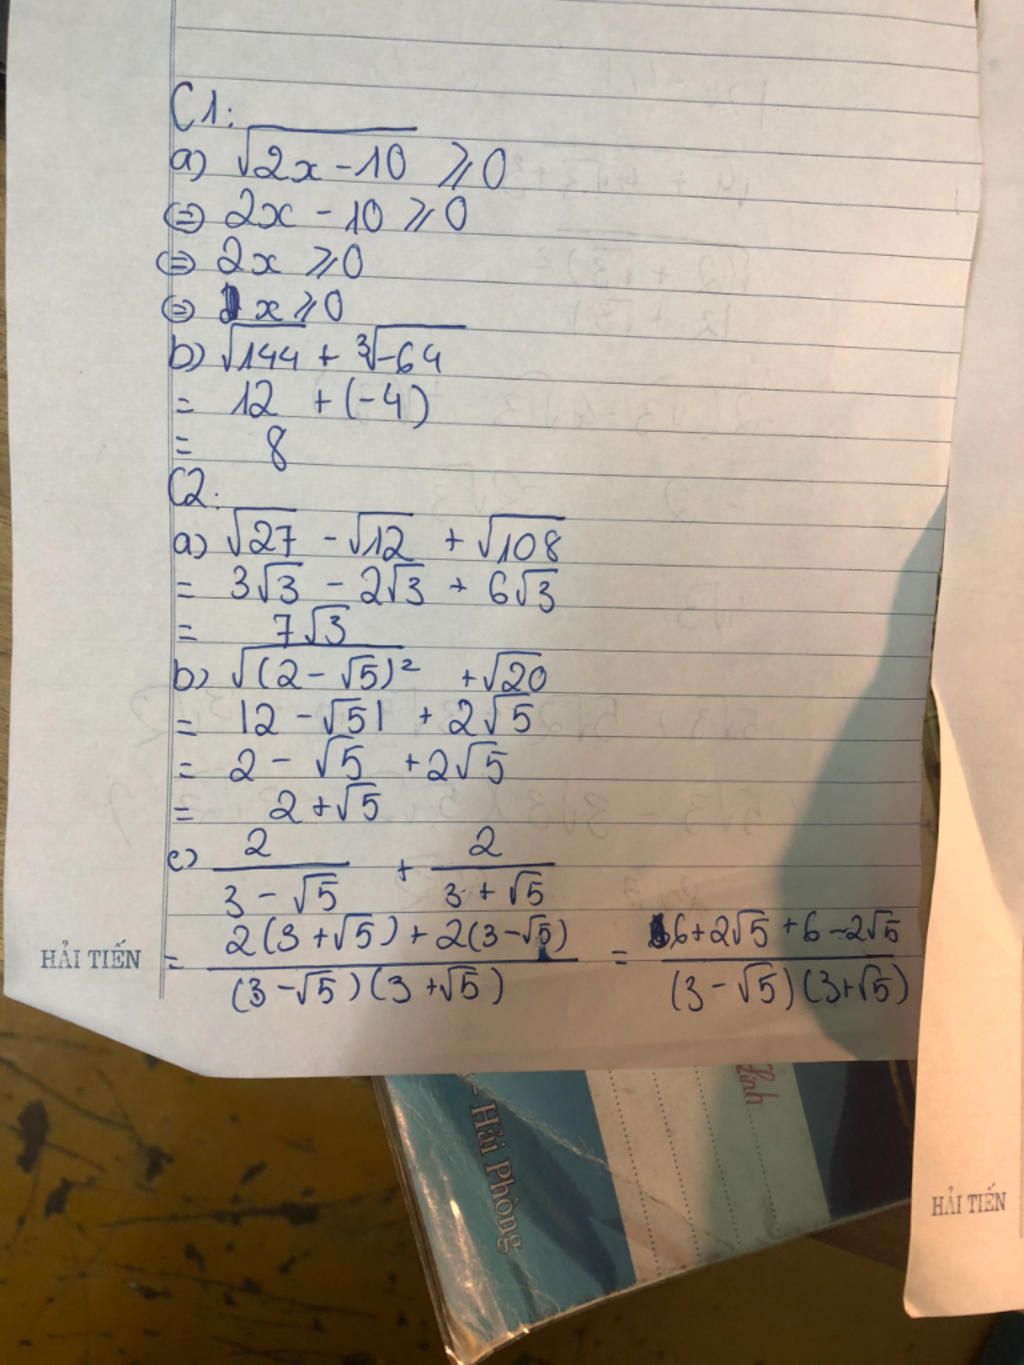 C1:
a) √(2x - 10) ⩾ 0
⇔ 2x - 10 ⩾ 0
⇔ 2x ⩾ 0
⇔ x ⩾ 0
b) √144 + ∛-64
= 12 + (-4)
= 8
C2:
a) √27 - √12 + √108
= 3√3 - 2√3 + 6√3
= 7√3
b) √((2 - √5)²) + √20
= |2 - √5| + 2√5
= 2 - √5 + 2√5
= 2 + √5
c) 2/(3 - √5) + 2/(3 + √5)
= (2(3 + √5) + 2(3 - √5))/((3 - √5)(3 + √5)) = (6 + 2√5 + 6 - 2√5)/((3 - √5)(3 + √5))
HẢI TIẾN
- Hải Phòng
HẢI TIẾN